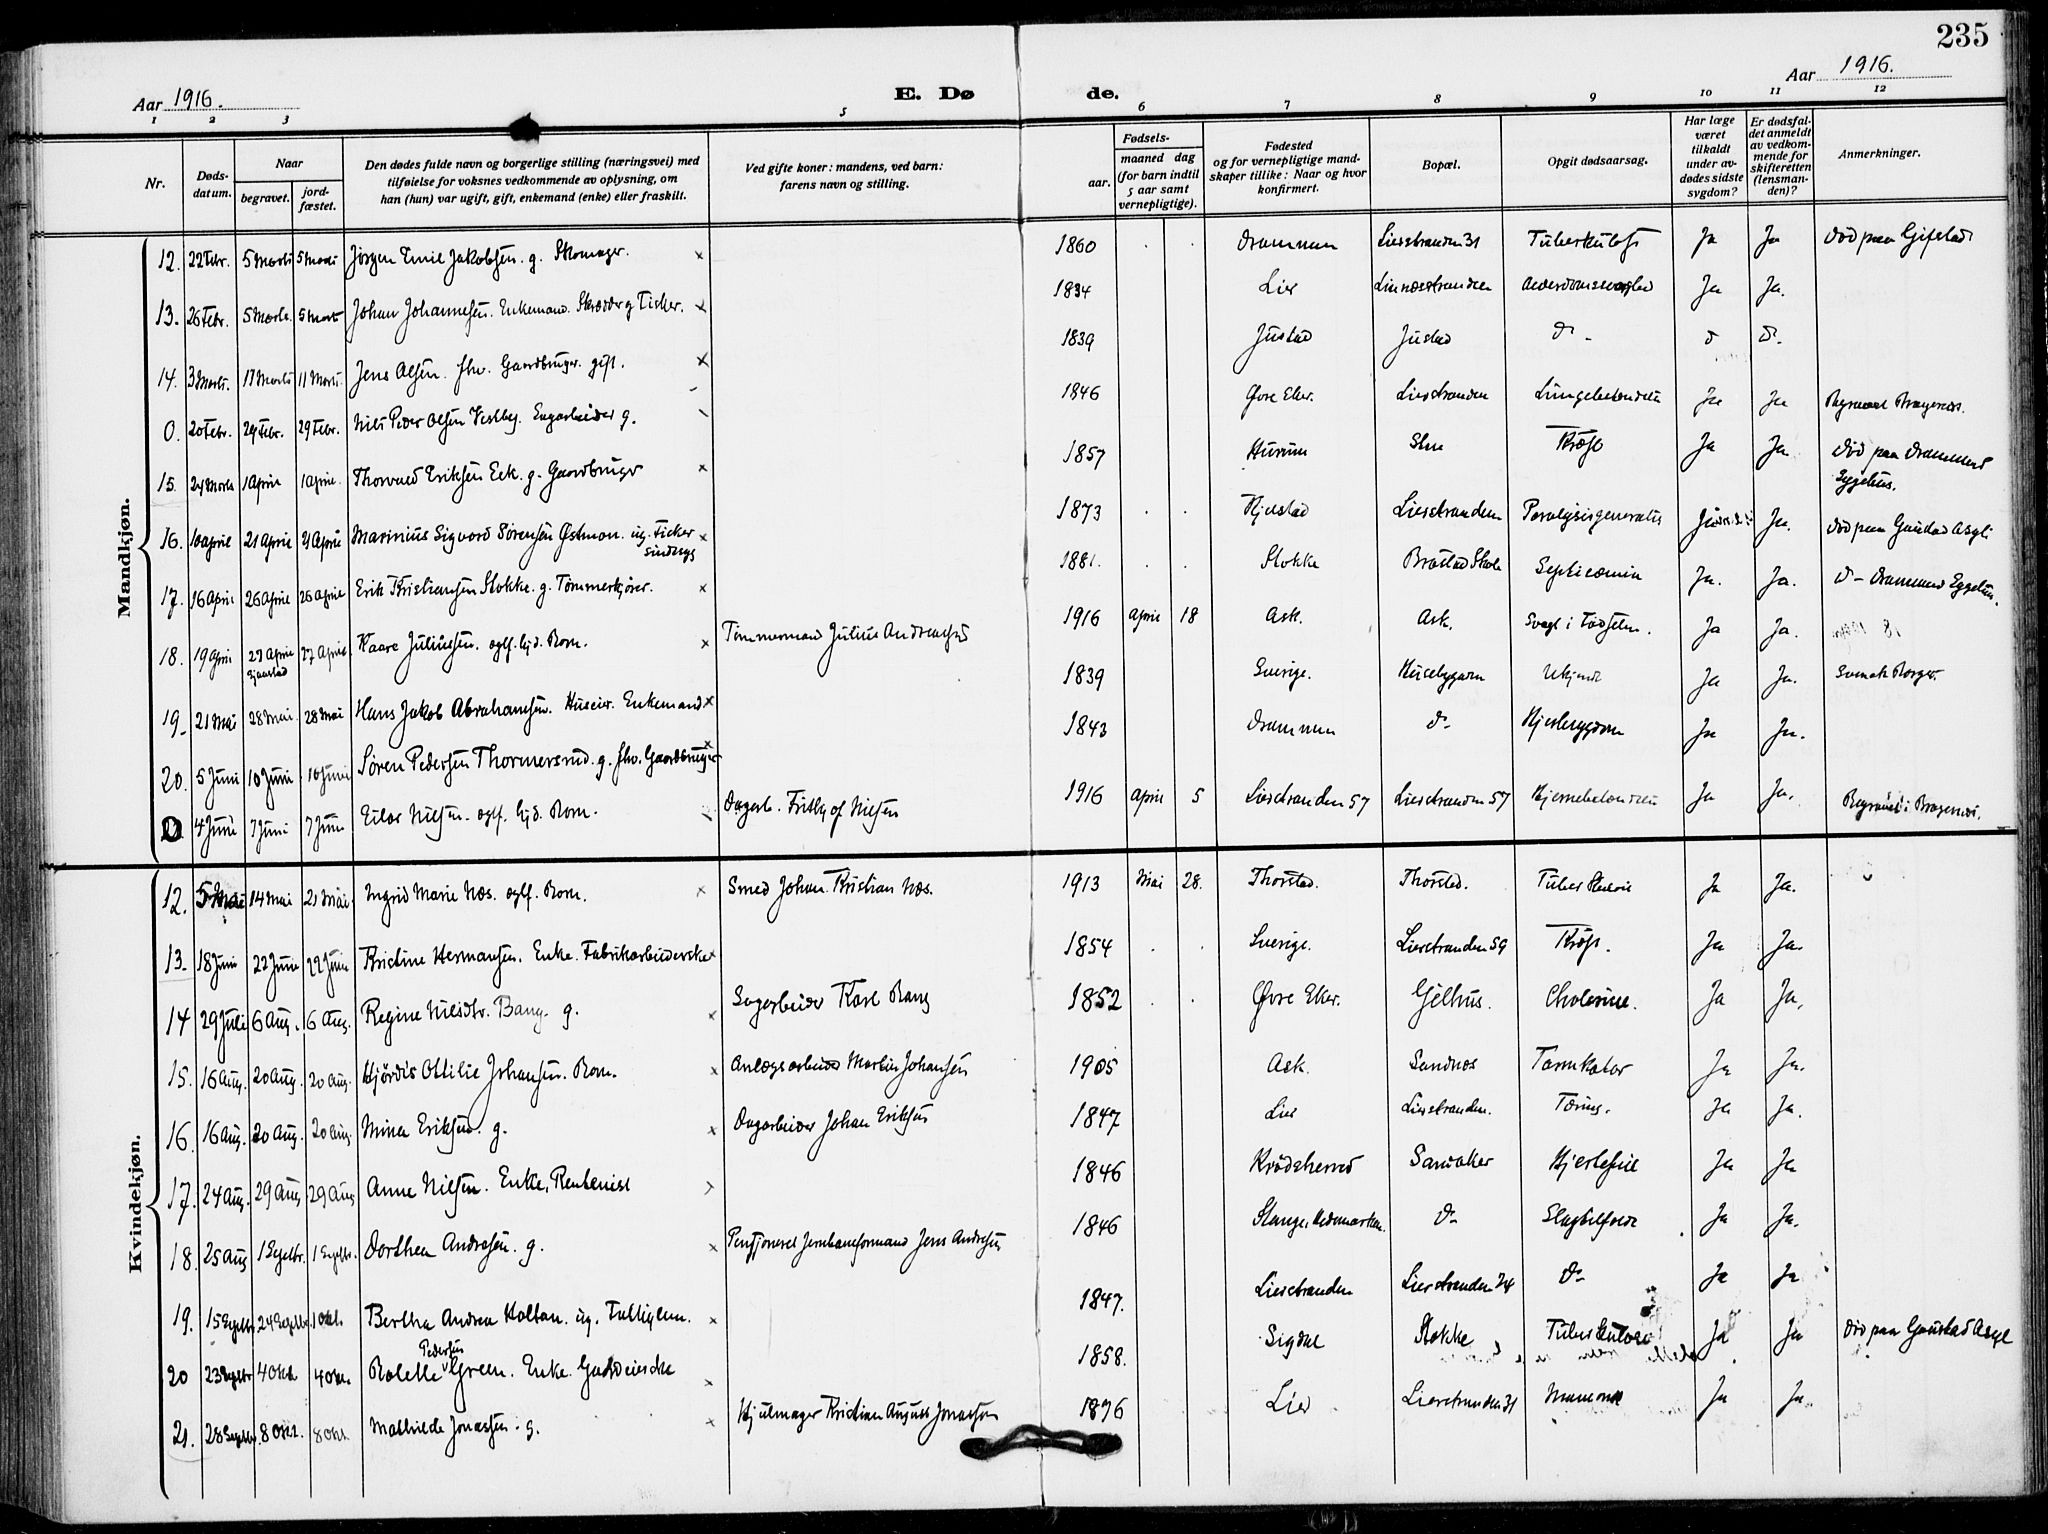 235
Aar 1916.
E. Dø de.
Aar 1916.
1 2 3 5 6 7 8 9 10 11 12
Nr.
Døds-
datum.
Naar
begravet.
jord-
fæstet.
Den dødes fulde navn og borgerlige stilling (næringsvei) med
tilføielse for voksnes vedkommende av oplysning, om
han (hun) var ugift, gift, enkemand (enke) eller fraskilt.
Ved gifte koner: mandens, ved barn:
farens navn og stilling.
Fødsels-
aar.
maaned dag
(for barn indtil
5 aar samt
vernepligtige).
Fødested
og for vernepligtige mand-
skaper tillike: Naar og hvor
konfirmert.
Bopæl.
Opgit dødsaarsag.
Har læge
været
tilkaldt
under av-
dødes sidste
sygdom?
Er dødsfal-
det anmeldt
av vedkom-
mende for
skifteretten
(lensman-
den)?
Anmerkninger.
Mandkjøn.
12. 22 Febr. 5 Marts 5 Marts Jørgen Emil Jakobsen. g. Skomager. x 1860 . . Drammen Lierstranden 31 Ja Ja Død paa
13. 26 Febr. 5 Marts 5 Marts Johan Johannesen. Enkemand. Skrædder og Fisker. x 1834 Lier Ja Ja.
14. 3 Marts. 11 Marts 11 Marts. Jens Olsen. fhv. Gaardbruger. gift. x 1839 Justad Justad d-
0. 20 Febr. 29 Febr. 29 Febr. Nils Peder Olsen Vestby. g. 1846 Øvre Eker. Lierstranden Lungebetændelse Ja Ja Begravet Bragernes.
15. 24 Marts 1 April 1 April. Thorvald Eriksen Eek. g. Gaardbruger x 1857 Hurum Kræft Ja Ja Død paa Drammens
Sygehus.
16. 10 April 21 April 21 April Marinius Sigvard Sørensen Østmon. ug. Fisker x
sindssyg
1873 . . Lierstranden Paralysis generalis Ja. Død paa Gaustad Asyl
17. 16 April 26 April 26 April Erik Kristiansen Stokke. g. Tømmerkjører. x 1881. . . Stokke Brastad Skole Septicæmia Ja. Ja. d- Drammens Sygehus.
18. 19 April 27 April 27 April. Kaare Juliussen. egtf. hjd. Barn. x Tømmermand Julius Andreassen 1916 April 18 Ask. Ask. Svagt i Fødselen. Ja Ja.
19. 21 Mai 28 Mai. 28 Mai Hans Jakob Abrahamsen. Huseier. Enkemand. x 1839 Sverige. Husebygaten Ukjendt Ja Ja. Svensk Borger.
20. 5 Juni 10 Juni 10 Juni Søren Pedersen Thormersrud. g. fhv. Gaardbruger x 1843 Drammen d- Ja Ja.
0 4 Juni 7 Juni 7 Juni Eilar Nilsen. egtf. hjd. Barn. Dagarb. Frithjof Nilsen 1916 April 5 Lierstranden 57 Lierstranden 57 Hjernebetændelse Ja Ja. Begravet i Bragernes.
Kvindekjøn.
12. 5 Mai 14 Mai 21 Mai. Ingrid Marie Næs. egtf. Barn. x Smed Johan Kristian Næs. 1913 Mai 28. Thorstad. Thorstad. Ja Ja.
13. 18 Juni 22 Juni 22 Juni Kristine Hermansen. Enke. Fabrikarbeiderske x 1854 . . Sverige. Lierstranden 59 Kræft. Ja Ja.
14 29 Juli 6 Aug. 6 Aug. Regine Nilsdtr. Bang. g. x Sagarbeider Karl Bang 1852 . . Øvre Eker. Gilhus. Cholerine. Ja Ja.
15. 16 Aug. 20 Aug. 20 Aug. Hjørdis Ottilie Johansen. Barn. x Anlægsarbeider Martin Johansen 1905 Ask. Sandnes Tarmkatar Ja Ja.
16. 16 Aug. 20 Aug. 20 Aug. Mina Eriksen. g. x Dagarbeider Johan Eriksen 1847 Lier Lierstranden. Tæring. Ja Ja.
17. 24 Aug. 29 Aug 29 Aug Anne Nilsen. Enke. Rentenist x 1846 Krødsherred Sandaker Hjertefeil Ja Ja
18. 25 Aug 1 Septbr. 1 Septbr. Dorthea Andresen. g. x Pensjoneret Jernbaneformand Jens Andresen 1846 Stange, Hedemarken. d- Slagtilfælde Ja Ja.
19. 15 Septbr 24 Septbr. 1 Okt. Bertha Andrea Holtan. ug. Fattiglem. x 1847. Lierstranden Lierstranden 24 d- Ja Ja
20 23 Septbr 4 Okt 4 Okt. Bolette Pedersen Green. Enke. x 1858. Sigdal Stokke Tuberkulose Ja Ja Død paa Gaustad Asyl
21. 28 Septbr. 8 Okt. 8 Okt. Mathilde Jonassen. g. x Hjulmager Kristian August Jonassen 1896 Lier Lierstranden 31 Ja Ja.